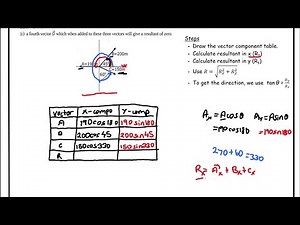 (ii) a fourth vector D which when added to these three vectors will give a resultant of zero.
B=200m
A=19
C=150m
60°
Steps
- Draw the vector component table.
- Calculate resultant in x (Rₓ)
- Calculate resultant in y (Rᵧ)
- Use R = √Rₓ² + Rᵧ²
- To get the direction, we use tan θ = Rᵧ/Rₓ
vector x-compo y-comp
A 190cos180 190sin180
B 200cos45 200sin45
C 150cos330 150sin330
R
Aₓ = Acosθ Aᵧ = Asinθ
= 190cos180 = 190sin180
270+60 = 330
Rₓ = Aₓ + Bₓ + Cₓ